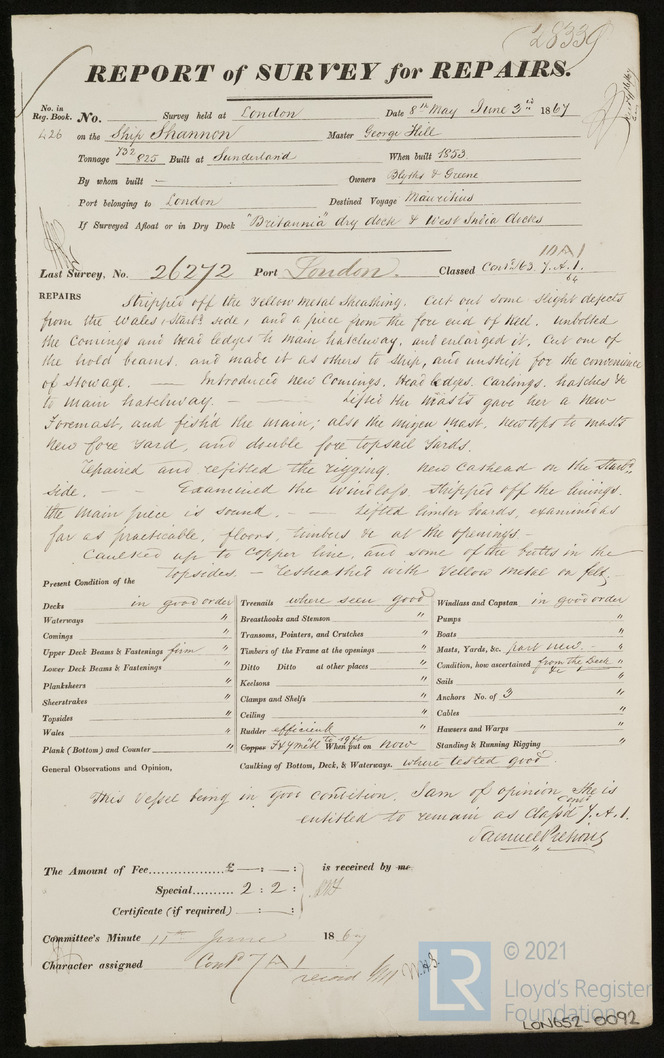 28339
REPORT of SURVEY for REPAIRS.
No. in Reg. Book. No. Survey held at London Date 8th May June 3rd 1867
426 on the Ship Shannon Master George Hill
Tonnage 732 825 Built at Sunderland When built 1853
By whom built — Owners Blyths & Greene
Port belonging to London Destined Voyage Mauritius
If Surveyed Afloat or in Dry Dock "Britannia" dry dock & West India docks
10 A 1
Last Survey, No. 26272 Port London. Classed Contd 7. A. 1.
64
REPAIRS Stripped off the Yellow Metal Sheathing. Cut out some slight defects
from the Wales, Starbd side, and a piece from the fore end of Keel. Unbolted
the Comings and Head ledges to main hatchway, and enlarged it. Cut one of
the hold beams. and made it as others to ship, and unship for the convenience
of Stowage. — Introduced new Comings. Head ledges. Carlings. hatches &c
to main hatchway. — Lifted the masts gave her a new
Foremast, and fish'd the main; also the mizen mast. new tops to masts
new fore Yard, and double fore topsail Yards.
Repaired and refitted the rigging. new cathead on the Starbd
side. — Examined the windlass. Stripped off the linings.
the main piece is sound. — Lifted limber boards, examined as
far as practicable, floors, timbers &c at the openings —
Caulked up to Copper line, and some of the butts in the
topsides. — Resheathed with Yellow metal on felt —
Present Condition of the
Decks in good order Treenails where seen good Windlass and Capstan in good order
Waterways " Breasthooks and Stemson " Pumps "
Comings " Transoms, Pointers, and Crutches " Boats "
Upper Deck Beams & Fastenings firm " Timbers of the Frame at the openings " Masts, Yards, &c. part new. "
Lower Deck Beams & Fastenings " Ditto Ditto at other places " Condition, how ascertained from the Deck &c "
Planksheers " Keelsons " Sails "
Sheerstrakes " Clamps and Shelfs " Anchors No. of 3 "
Topsides " Ceiling " Cables "
Wales " Rudder efficient " Hawsers and Warps "
Plank (Bottom) and Counter " Copper F & Y Metl to 19 ft When put on now Standing & Running Rigging "
General Observations and Opinion, Caulking of Bottom, Deck, & Waterways. where tested good
This Vessel being in good condition. I am of opinion she is
entitled to remain as Class'd Contd 7. A. 1.
Samuel
The Amount of Fee £ — : — : is received by me
Special 2 : 2 :
Certificate (if required) — : — :
Committee's Minute 11th June 1867
Character assigned Contd 7 A 1
record W.H.S.
LR © 2021
Lloyd's Register
Foundation
LON652-0092